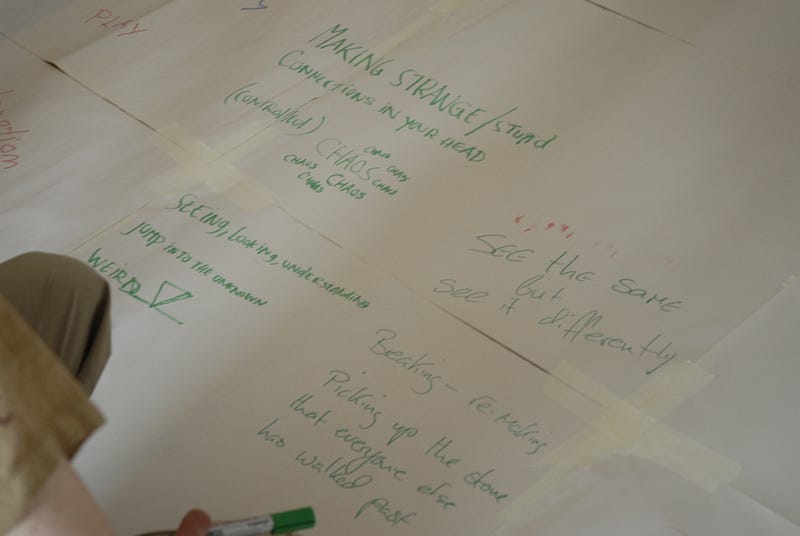 PLAY
MAKING STRANGE/stupid
CONNECTIONS IN YOUR HEAD
(CONTROLLED)
CHAOS CHAOS CHAOS
CHAOS CHAOS CHAOS
CHAOS
SEEING, LOOKING, UNDERSTANDING
JUMP INTO THE UNKNOWN
WEIRD
SEE the same
but
see it differently
Breaking - re-making
Picking up the stone
that everyone else
has walked past